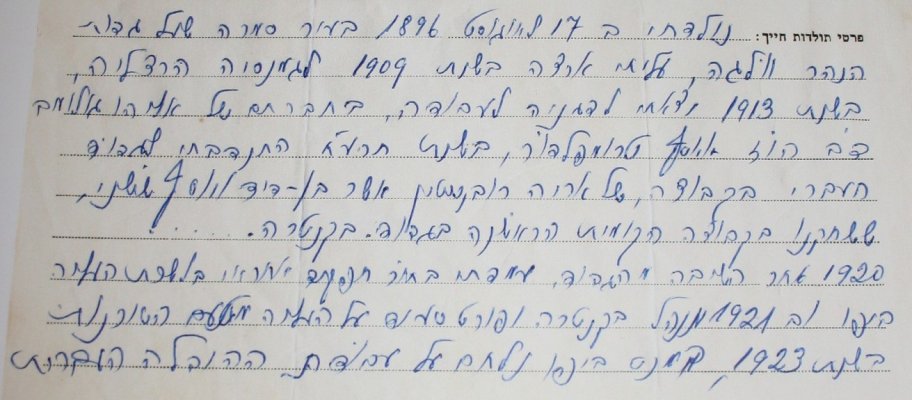 פרטי תולדות חייך: נולדתי ב 17 לאוגוסט 1896 בעיר סמרה שעל גדות
הנהר וולגה, עליתי ארצה בשנת 1909 לגמנסיה הרצליה,
בשנת 1913 יצאתי לדגניה לעבודה, בחברתם של אליהו גולומב
ד"ב הוז יוסף טרומפלדור, בשנת תרע"ח התנדבתי לגדוד
העברי בקבוצה, של אריה רובנשטין אשר בן-דוד יוסף ששוני,
ששחקנו בקבוצה הקומית הראשונה בגדוד. בקנטרה.
1920 אחר השיבה מהגדוד, עמדתי בתור בלשכת העליה
ביפו וב 1921 מנהל בקנטרה ופורט סעיד על העליה מטעם
בשנת 1923, ביפו נלחם על עבודת ההובלה העברית